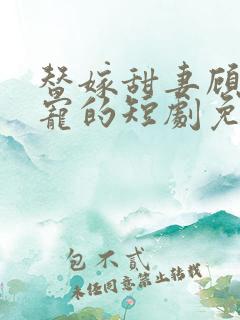 替嫁甜妻顾
宠的短劇免
包不貳
未经同意禁止转载